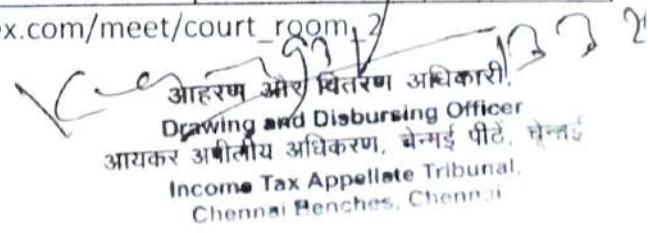 x.com/meet/court_room_2
आहरण और वितरण अधिकारी,
Drawing and Disbursing Officer
आयकर अपीलीय अधिकरण, चेन्नई पीठें, चेन्नई
Income Tax Appellate Tribunal,
Chennai Benches, Chennai